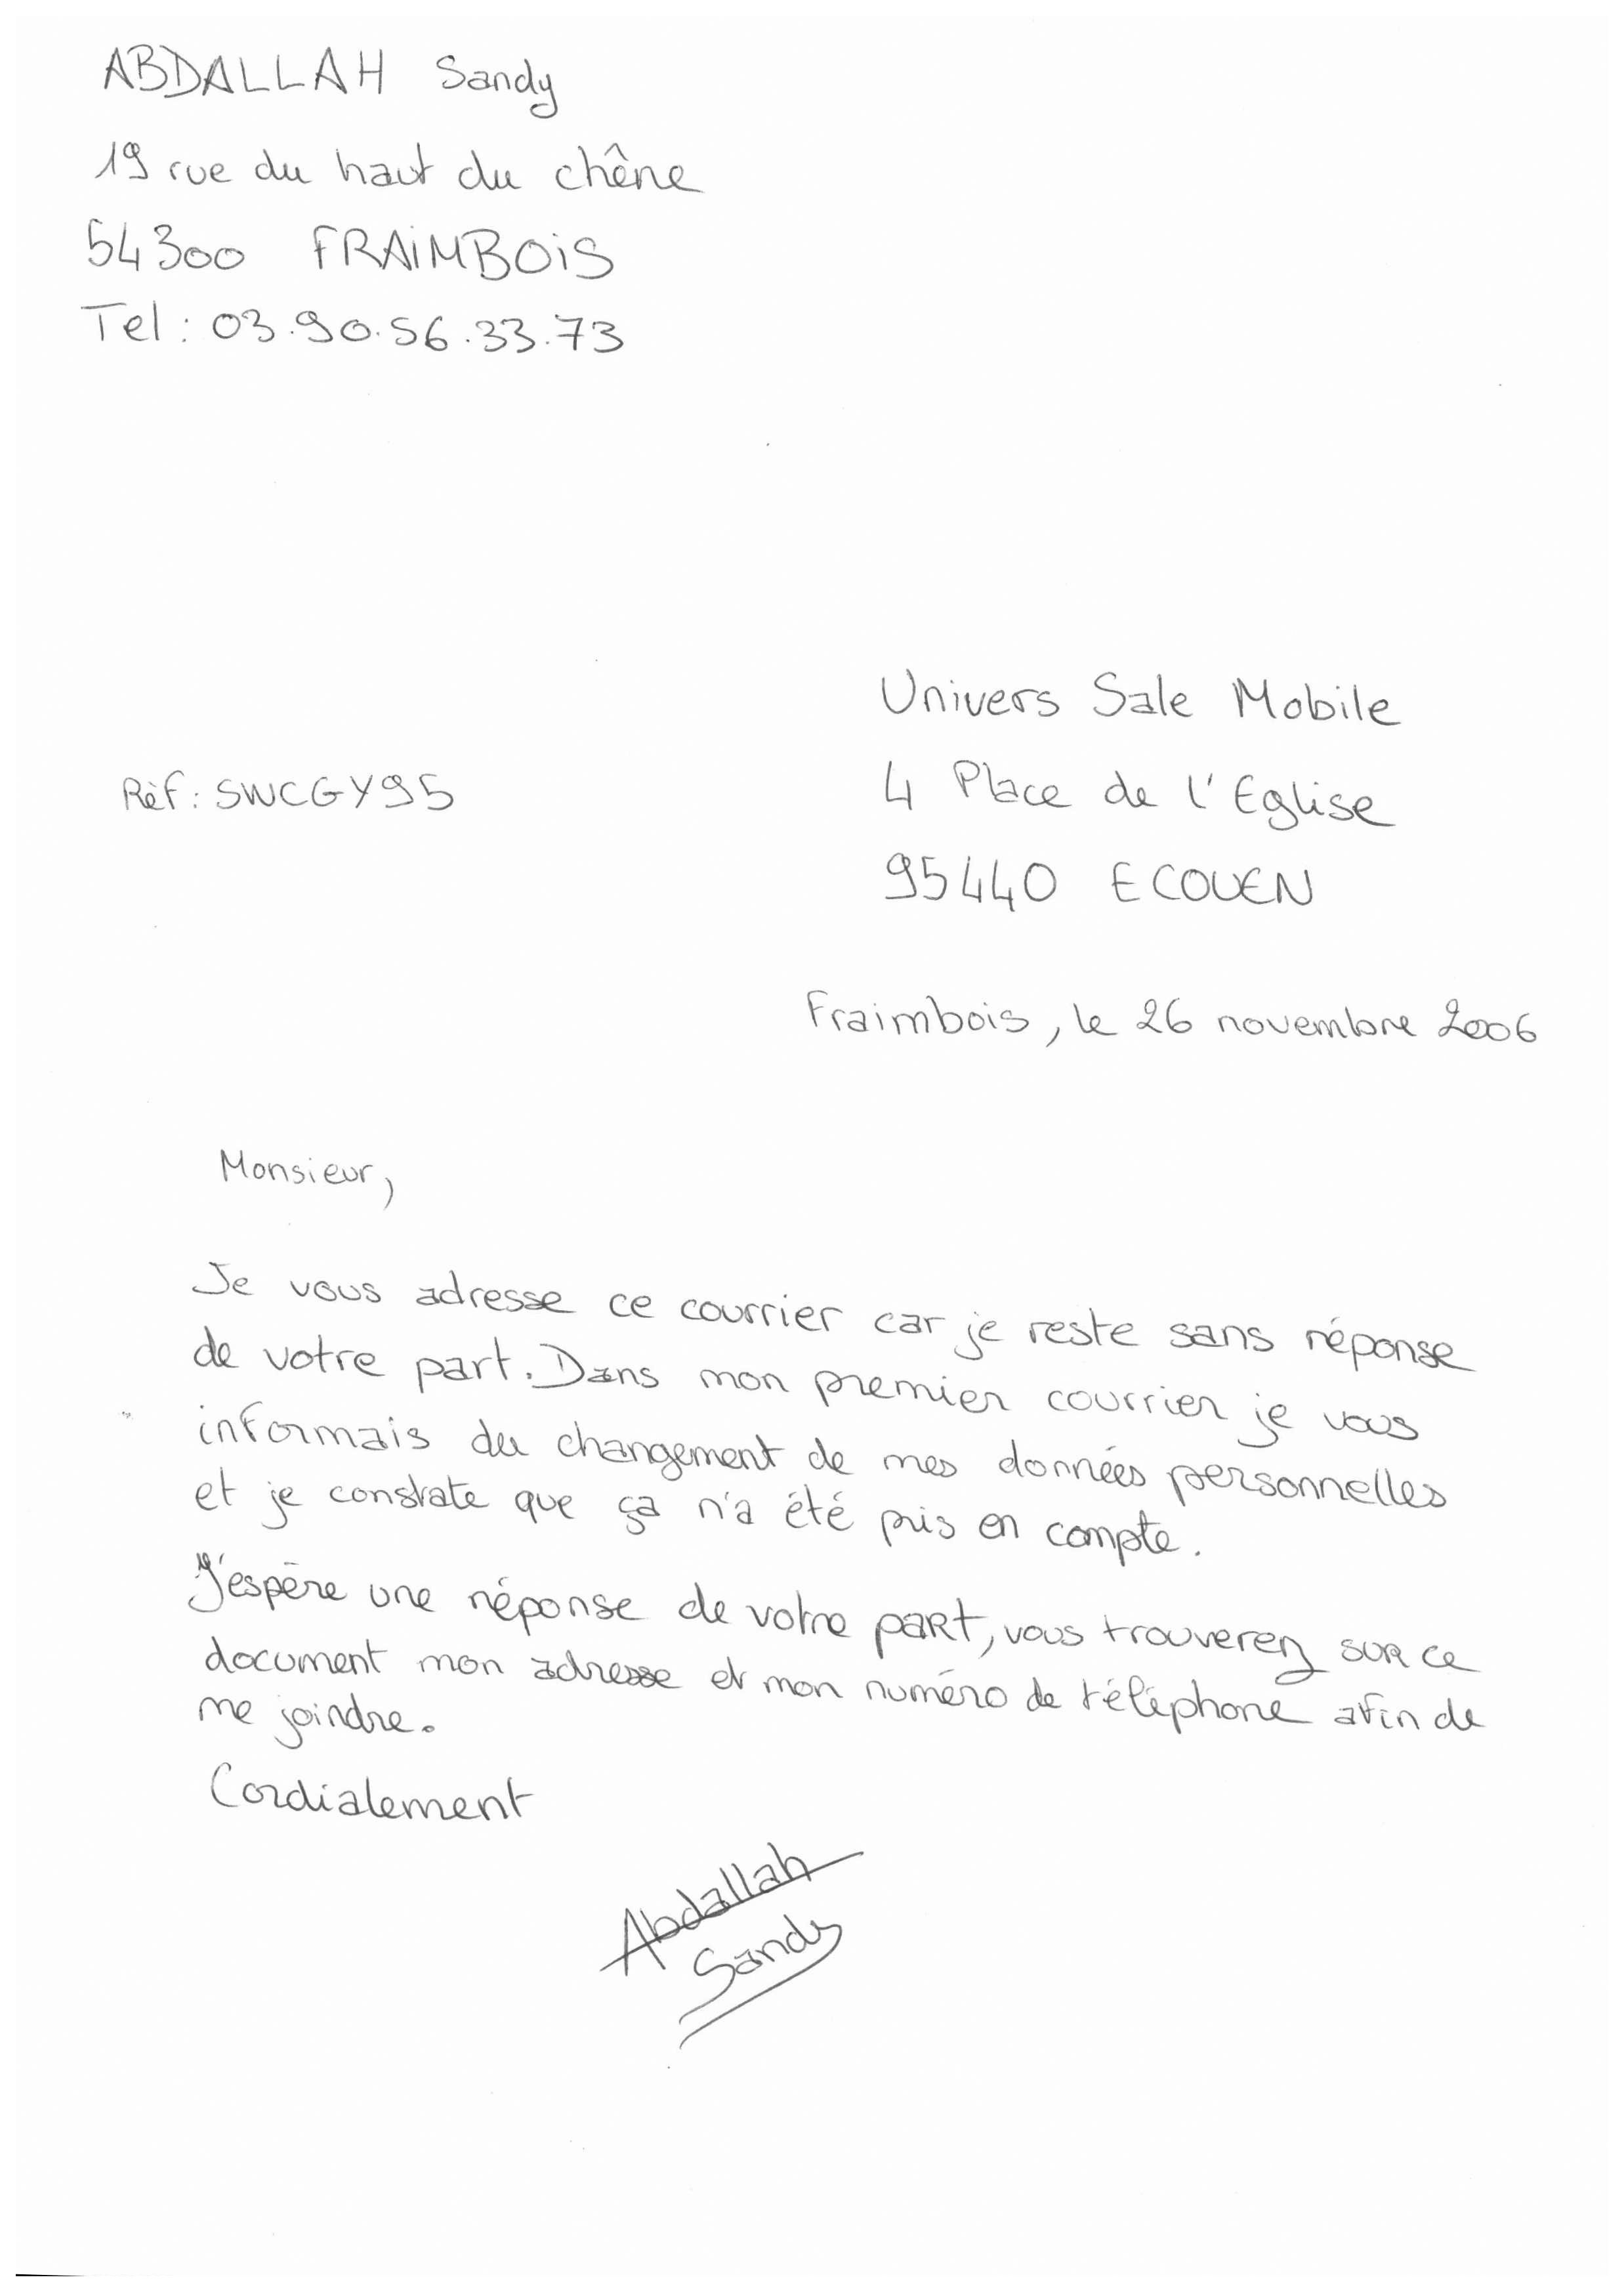 ABDALLAH Sandy
19 rue du haut du chêne
54300 FRAIMBOIS
Tel : 03.90.56.33.73
Univers Sale Mobile
Réf : SWCGY95
4 Place de l'Eglise
95440 ECOUEN
Fraimbois, le 26 novembre 2006
Monsieur,
Je vous adresse ce courrier car je reste sans réponse
de votre part. Dans mon premier courrier je vous
informais du changement de mes données personnelles
et je constate que ça n'a été pris en compte.
J'espère une réponse de votre part, vous trouverez sur ce
document mon adresse et mon numéro de téléphone afin de
me joindre.
Cordialement
Abdallah
Sandy